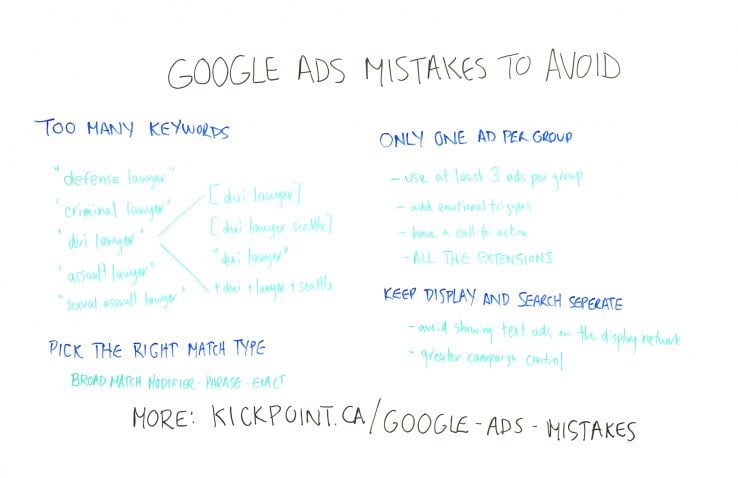 GOOGLE ADS MISTAKES TO AVOID
TOO MANY KEYWORDS
"defense lawyer"
"criminal lawyer"
"dui lawyer"
"assault lawyer"
"sexual assault lawyer"
[dui lawyer]
[dui lawyer seattle]
"dui lawyer"
+dui +lawyer +seattle
PICK THE RIGHT MATCH TYPE
BROAD MATCH MODIFIER · PHRASE · EXACT
ONLY ONE AD PER GROUP
- use at least 3 ads per group
- add emotional triggers
- have a call to action
- ALL THE EXTENSIONS
KEEP DISPLAY AND SEARCH SEPERATE
- avoid showing text ads on the display network
- greater campaign control
MORE: KICKPOINT.CA/GOOGLE-ADS-MISTAKES